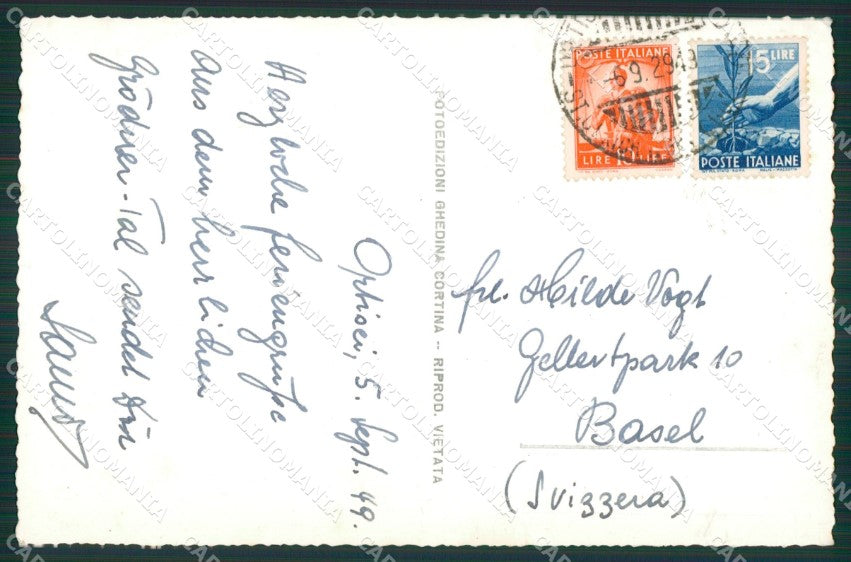 Optisei, 5. Sept. 49.
Herzliche Feriengrüsse
aus dem herrlichen
Grödner-Tal sendet Dir
FOTOEDIZIONI GHEDINA CORTINA -- RIPROD. VIETATA
POSTE ITALIANE
LIRE 10
15 LIRE
POSTE ITALIANE
-6.9.
Frl. Hilde Vogt
Gellertpark 10
Basel
(Svizzera)
CARTOLINOMANIA